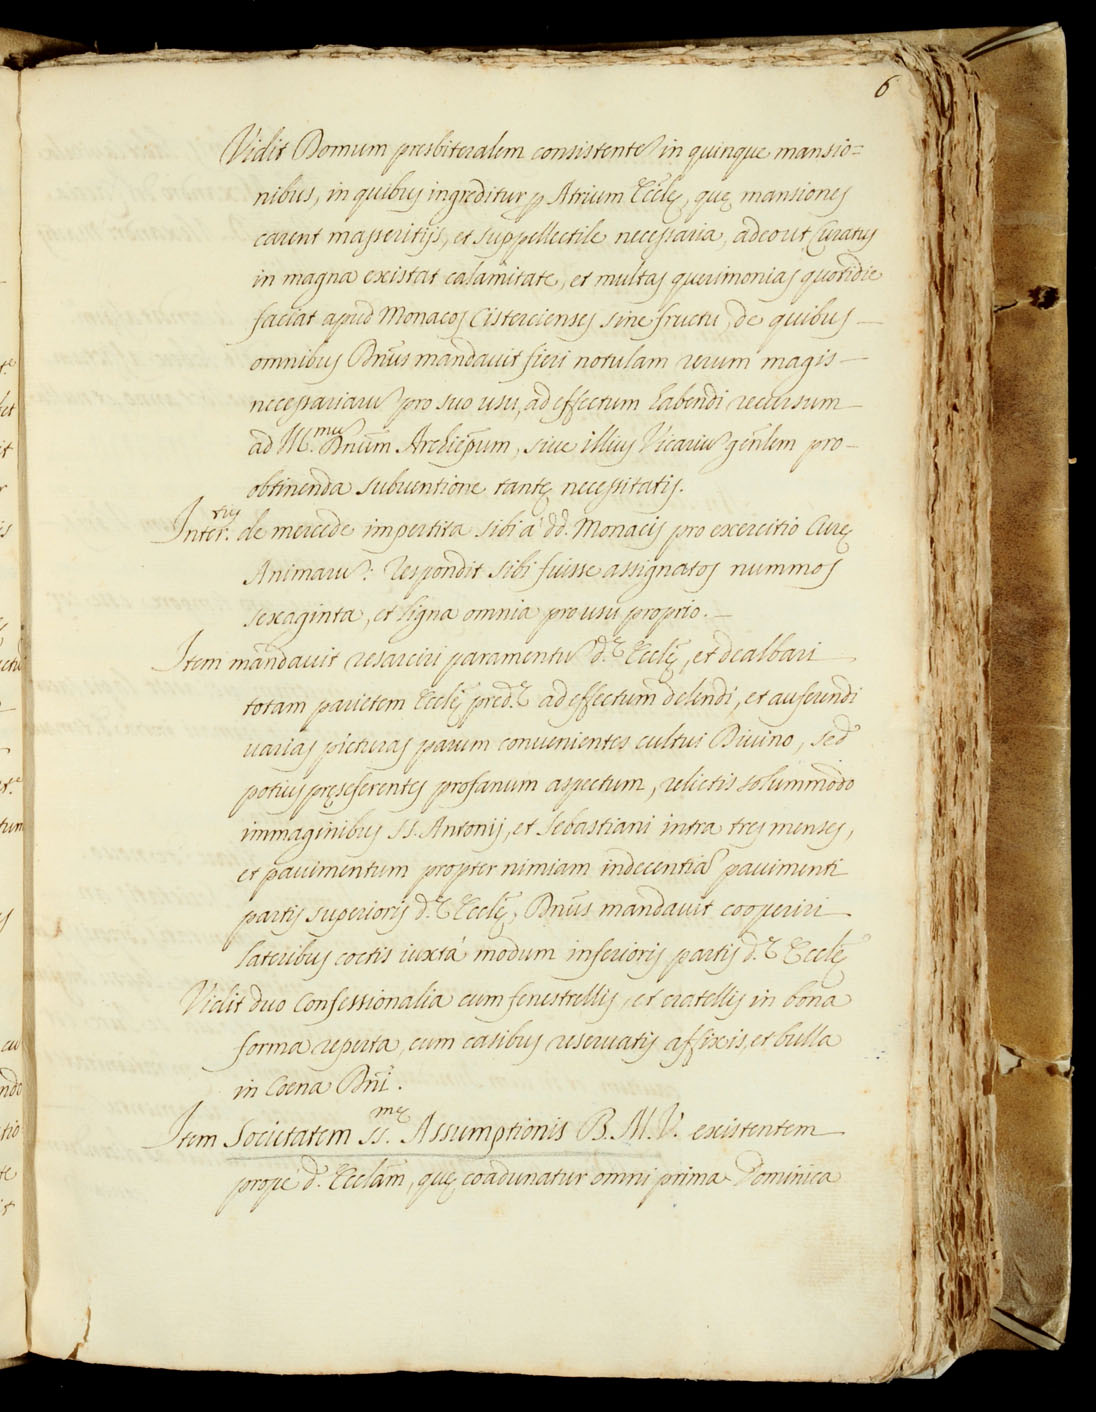 6
Vidit Domum presbiteralem consistente in quinque mansio=
nibus, in quibus ingreditur p Atrium Ecclę, quę mansiones
carent masseritijs, et suppellectile necessaria, adeout Curatus
in magna existat calamitate, et multas querimonias quotidie
faciat apud Monacos Cistercienses sine fructu, de quibus —
omnibus Dnūs mandavit fieri notulam rerum magis —
necessariarū pro suo usu, ad effectum habendi recursum
ad Ill.mū Dnūm Archiepūm, sive illius Vicariū genlem pro-
obtinenda subventione tantę necessitatis.
Inter.tus de mercede impertita sibi á dd. Monacis pro exercitio Curę
Animarū: Respondit sibi fuisse assignatos nummos
sexaginta, et ligna omnia pro usu proprio. —
Item mandavit resarciri paramentū d.ę Ecclę, et dealbari
totam parietem Ecclę pred.ę ad effectum delendi, et auferendi
varias picturas parum convenientes cultui Divino, sed
potius pręseferentes profanum aspectum, relictis solummodo
immaginibus SS. Antonij, et Sebastiani intra tres menses,
et pavimentum propter nimiam indecentiā pavimenti
partis superioris d.ę Ecclę, Dnūs mandavit cooperiri
lateribus coctis iuxtá modum inferioris partis d.ę Ecclę
Vidit duo Confessionalia cum fenestrellis, et cratellis in bona
forma reperta, cum casibus reservatis affixis, et bulla
in Coena Dnī.
Item Societatem SS.mę Assumptionis B.M.V. existentem
propé d. Ecclām, quę coadunatur omni prima Dominica